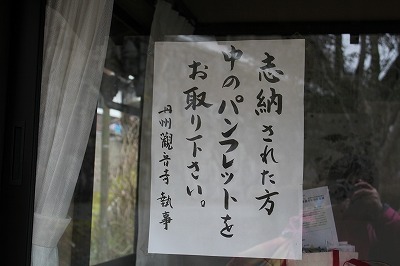 志納された方
中のパンフレットを
お取り下さい。
丹州觀音寺 執事